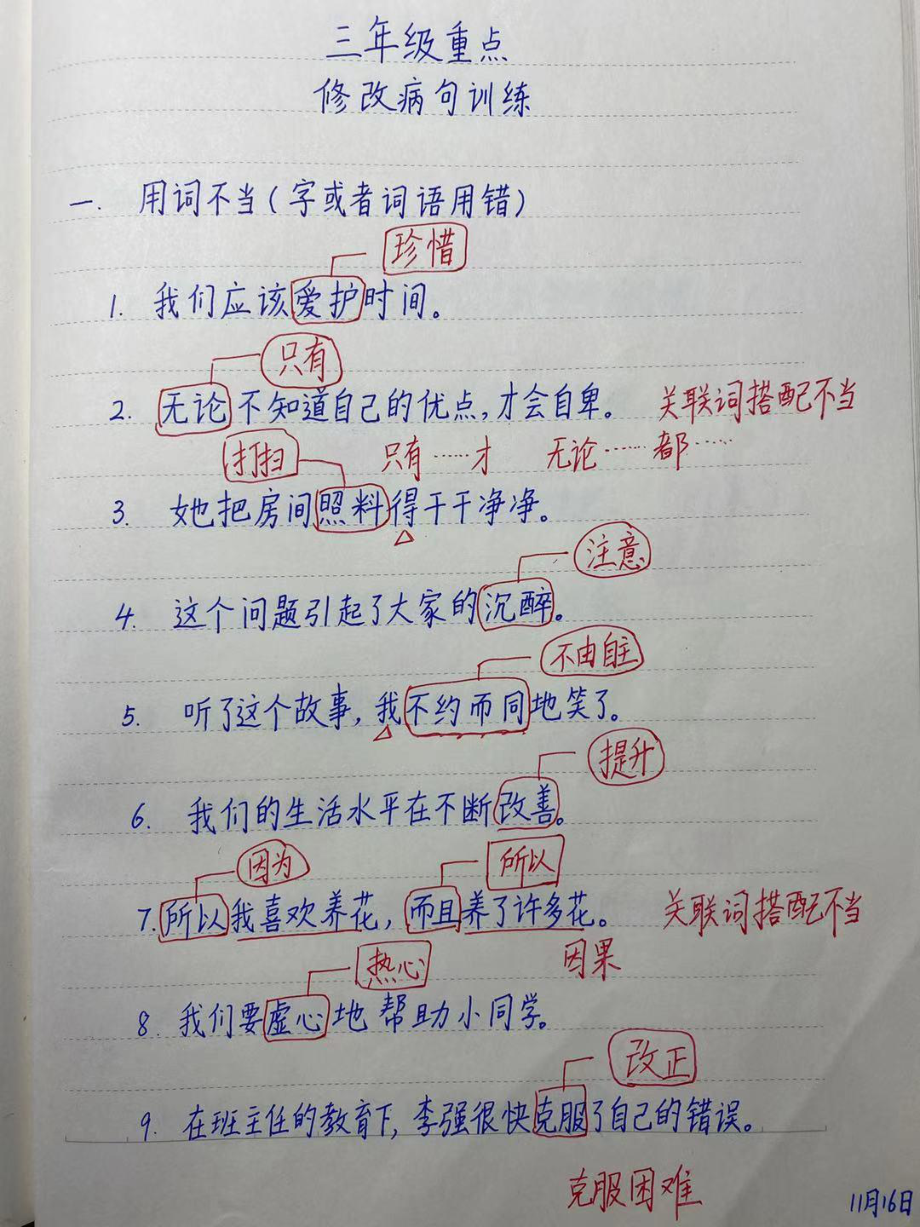 三年级重点
修改病句训练
一. 用词不当(字或者词语用错)
珍惜
1. 我们应该爱护时间。
只有
2. 无论不知道自己的优点,才会自卑。 关联词搭配不当
打扫 只有……才 无论……都……
3. 她把房间照料得干干净净。
注意
4. 这个问题引起了大家的沉醉。
不由自主
5. 听了这个故事,我不约而同地笑了。
提升
6. 我们的生活水平在不断改善。
因为 所以
7. 所以我喜欢养花,而且养了许多花。 关联词搭配不当
热心 因果
8. 我们要虚心地帮助小同学。
改正
9. 在班主任的教育下,李强很快克服了自己的错误。
克服困难
11月16日